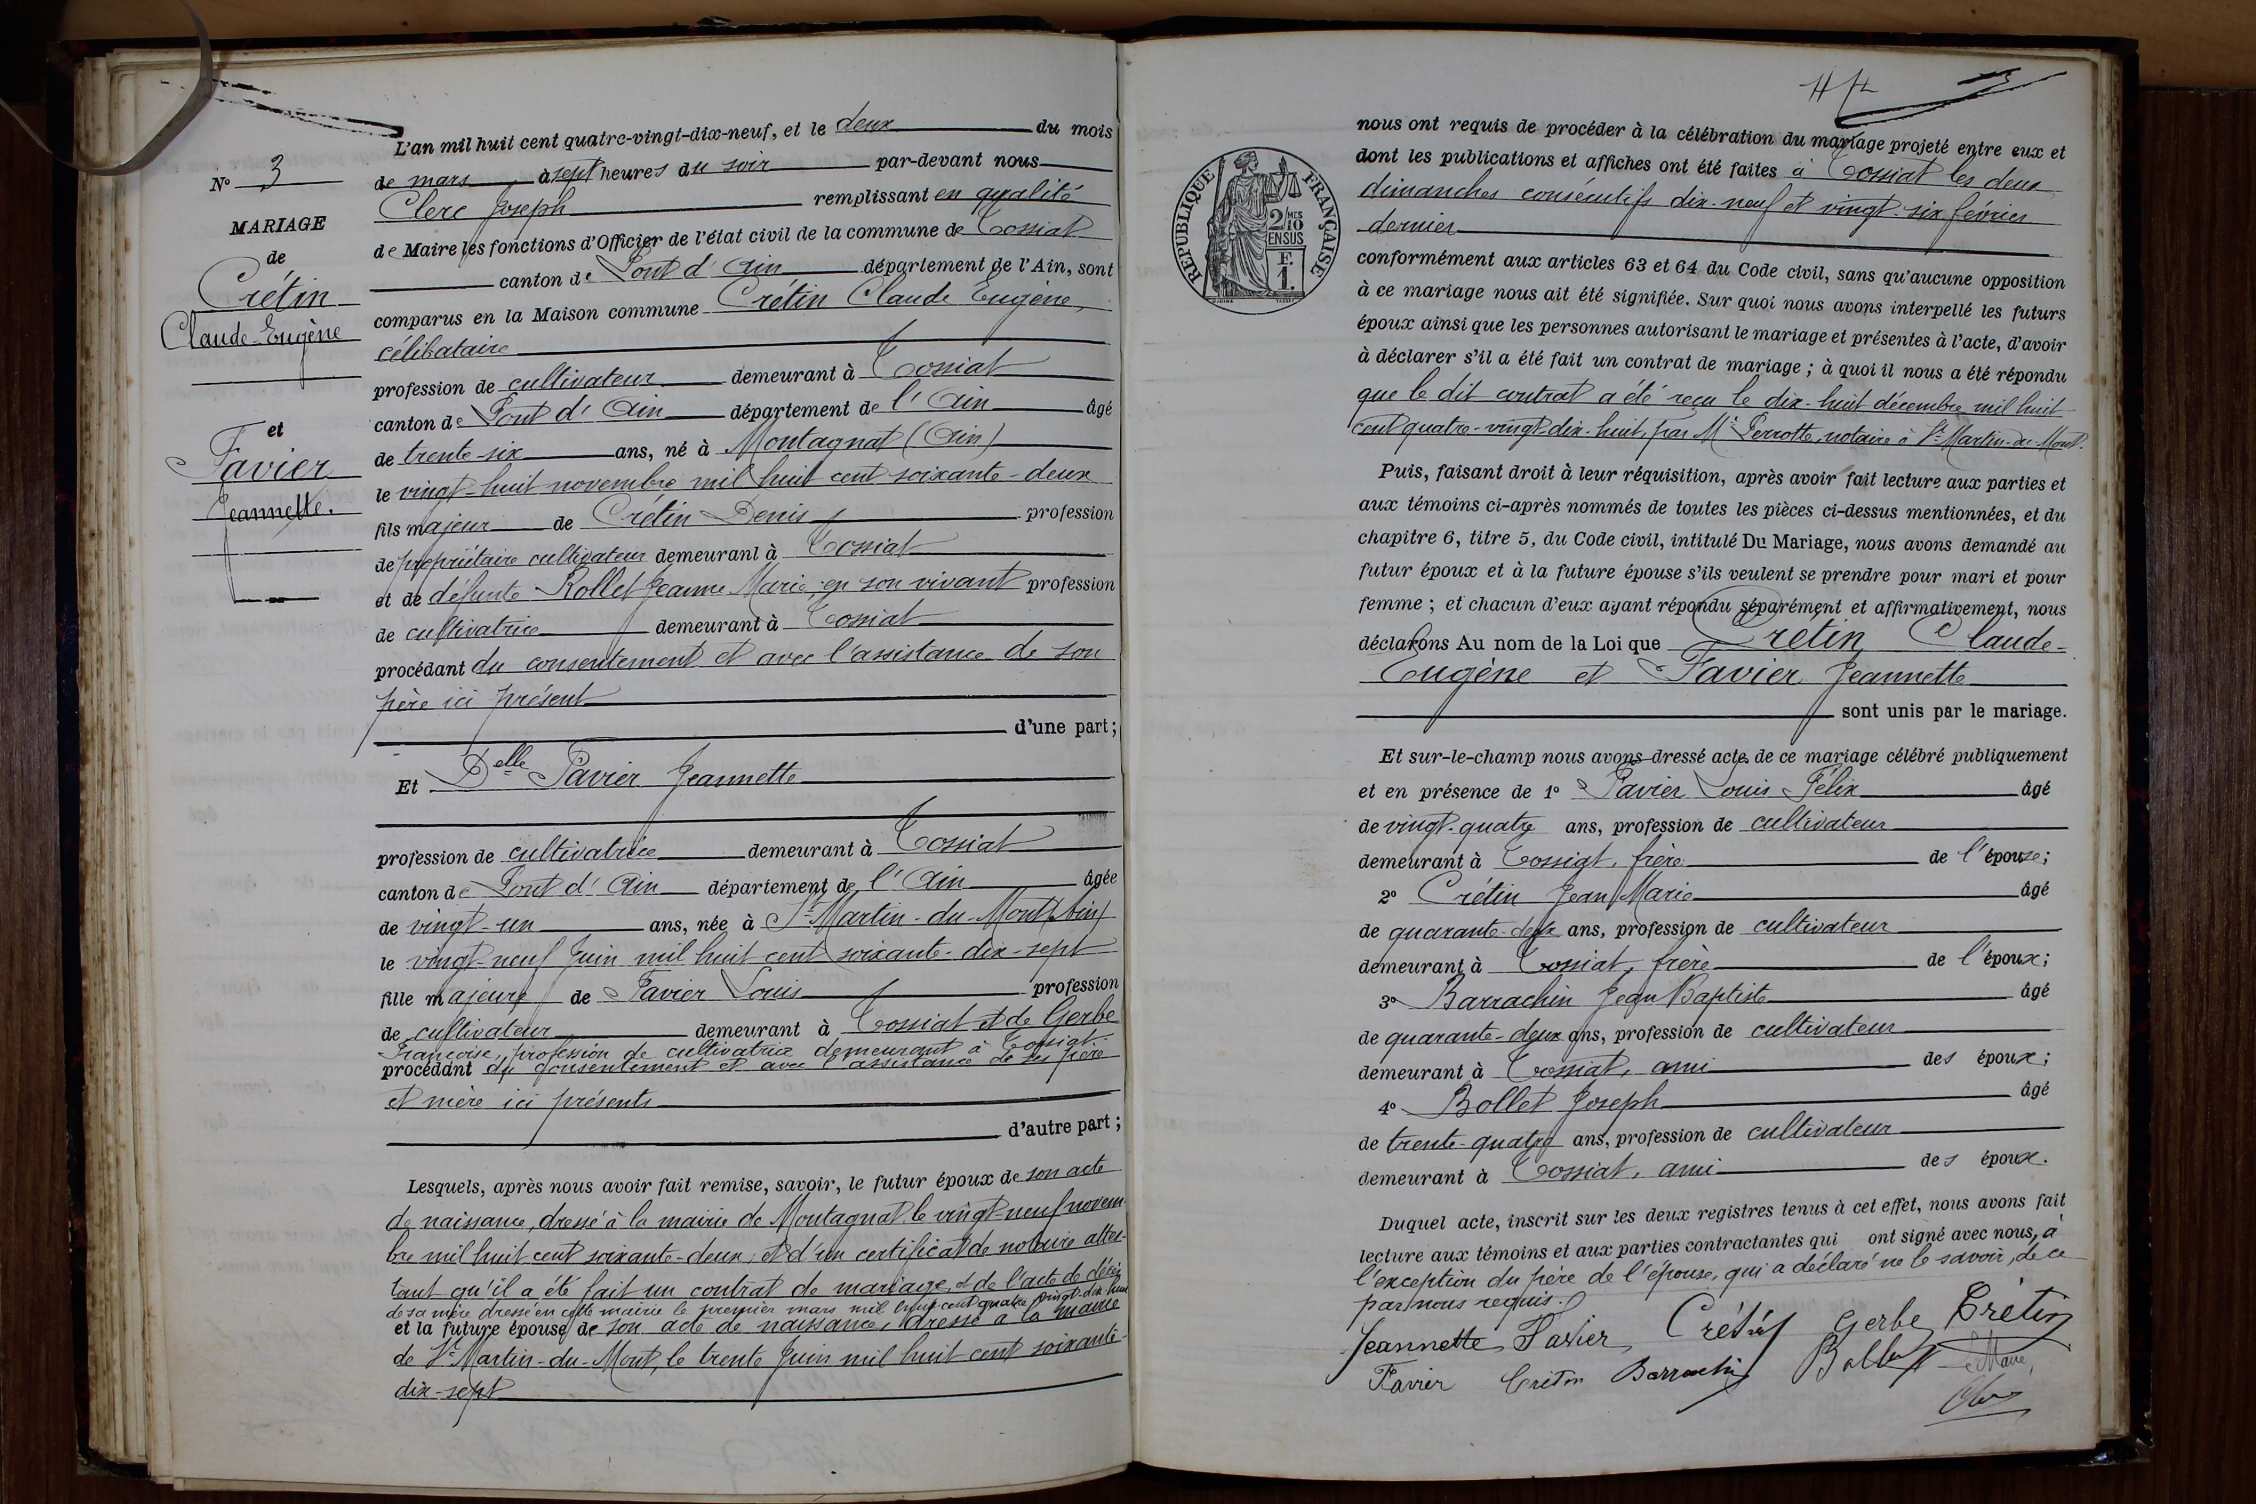 L'an mil huit cent quatre-vingt-dix-neuf, et le deux du mois
de mars à sept heures du soir par-devant nous
Clerc Joseph remplissant en qualité
de Maire les fonctions d'Officier de l'état civil de la commune de Tossiat
canton de Pont d'Ain département de l'Ain, sont
comparus en la Maison commune Crétin Claude Eugène,
célibataire
profession de cultivateur demeurant à Tossiat
canton de Pont d'Ain département de l'Ain âgé
de trente-six ans, né à Montagnat (Ain)
le vingt-huit novembre mil huit cent soixante-deux
fils majeur de Crétin Denis profession
de propriétaire cultivateur demeurant à Tossiat
et de défunte Rollet Jeanne Marie, en son vivant profession
de cultivatrice demeurant à Tossiat
procédant du consentement et avec l'assistance de son
père ici présent
d'une part;
Et Delle Favier Jeannette
profession de cultivatrice demeurant à Tossiat
canton de Pont d'Ain département de l'Ain âgée
de vingt-un ans, née à St Martin-du-Mont (Ain)
le vingt-neuf Juin mil huit cent soixante-dix-sept
fille majeure de Favier Louis profession
de cultivateur demeurant à Tossiat et de Gerbe
Françoise, profession de cultivatrice demeurant à Tossiat
procédant du consentement et avec l'assistance de ses père
et mère ici présents
d'autre part;
Lesquels, après nous avoir fait remise, savoir, le futur époux de son acte
de naissance, dressé à la mairie de Montagnat le vingt-neuf novem-
bre mil huit cent soixante-deux; et d'un certificat de notaire attes-
tant qu'il a été fait un contrat de mariage, et de l'acte de décès
de sa mère dressé en cette mairie le premier mars mil huit cent quatre vingt-dix huit
et la future épouse de son acte de naissance, dressé à la mairie
de St Martin-du-Mont, le trente Juin mil huit cent soixante-
dix-sept
No 3
MARIAGE
de
Crétin
Claude-Eugène
et
Favier
Jeannette.
RÉPUBLIQUE FRANÇAISE
2/10MES
EN SUS
F.
1.
nous ont requis de procéder à la célébration du mariage projeté entre eux et
dont les publications et affiches ont été faites à Tossiat les deux
dimanches consécutifs dix-neuf et vingt-six février
dernier
conformément aux articles 63 et 64 du Code civil, sans qu'aucune opposition
à ce mariage nous ait été signifiée. Sur quoi nous avons interpellé les futurs
époux ainsi que les personnes autorisant le mariage et présentes à l'acte, d'avoir
à déclarer s'il a été fait un contrat de mariage; à quoi il nous a été répondu
que le dit contrat a été reçu le dix-huit décembre mil huit
cent quatre-vingt-dix-huit, par Me Perrotte, notaire à St Martin-du-Mont.
Puis, faisant droit à leur réquisition, après avoir fait lecture aux parties et
aux témoins ci-après nommés de toutes les pièces ci-dessus mentionnées, et du
chapitre 6, titre 5, du Code civil, intitulé Du Mariage, nous avons demandé au
futur époux et à la future épouse s'ils veulent se prendre pour mari et pour
femme; et chacun d'eux ayant répondu séparément et affirmativement, nous
déclarons Au nom de la Loi que Crétin Claude-
Eugène et Favier Jeannette
sont unis par le mariage.
Et sur-le-champ nous avons dressé acte de ce mariage célébré publiquement
et en présence de 1o Favier Louis Félix âgé
de vingt-quatre ans, profession de cultivateur
demeurant à Tossiat, frère de l'épouse;
2o Crétin Jean Marie âgé
de quarante-deux ans, profession de cultivateur
demeurant à Tossiat, frère de l'époux;
3o Barrachin Jean Baptiste âgé
de quarante-deux ans, profession de cultivateur
demeurant à Tossiat, ami des époux;
4o Bollet Joseph âgé
de trente-quatre ans, profession de cultivateur
demeurant à Tossiat, ami des époux.
Duquel acte, inscrit sur les deux registres tenus à cet effet, nous avons fait
lecture aux témoins et aux parties contractantes qui ont signé avec nous, à
l'exception du père de l'épouse, qui a déclaré ne le savoir, de ce
par nous requis.
Jeannette Favier Crétin Gerbe Crétin
Favier Crétin Barrachin Bollet Le Maire,
Clerc